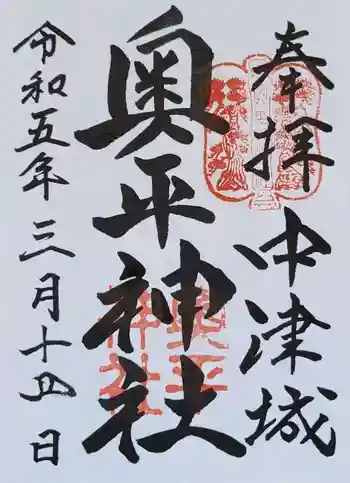 奉拝
中津城
奥平神社
令和五年三月十四日